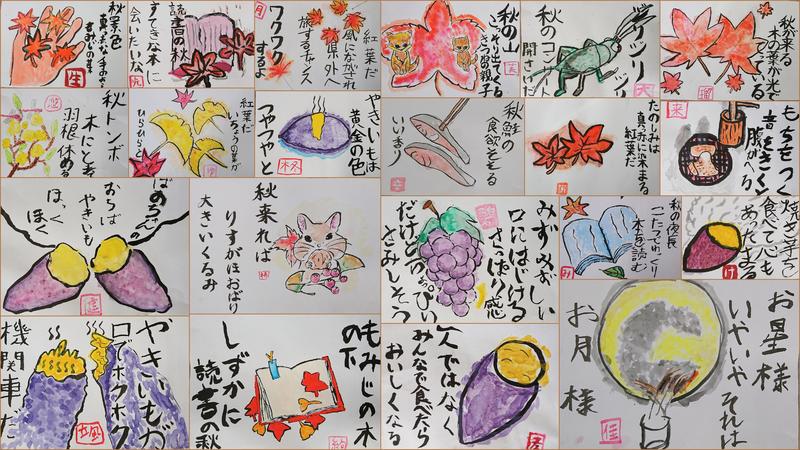 秋景色
まっかな手のひら
もみじの葉
生
読書の秋
すてきな本に
会いたいな
紅葉だ
風にながされ
旅するチャンス
県外へ
ワクワク
するよ
月
秋の山
ひょっこり出てくる
きつね親子
キリギリス
秋のコンサート
開さいだ
秋が来る
木の葉が丸で
秋トンボ
木にとまり
羽根休める
紅葉だ
ちょうの羽が
ひらひらと
やきいもは
黄金の色
つやつやと
柊
秋鮭の
食欲そそる
いい香り
たのしみは
真っ赤に染まる
紅葉だ
もちをつく
音をきくと
腹がへる
来
ばあちゃんの
おちば
やきいも
ほっくほく
秋来れば
りすがほおばり
大きいくるみ
みずみずしい
口にはじける
さっぱり感
秋の夜長
こたつでゆっくり
本を読む
み
焼き芋を
食べて心も
あたたまる
け
やきいもだ
口でホクホク
機関車だ
颯
もみじの木の下
しずかに
読書の秋
一人ではなく
みんなで食べたら
おいしくなる
お星様
いやいやそれは
お月様
佳